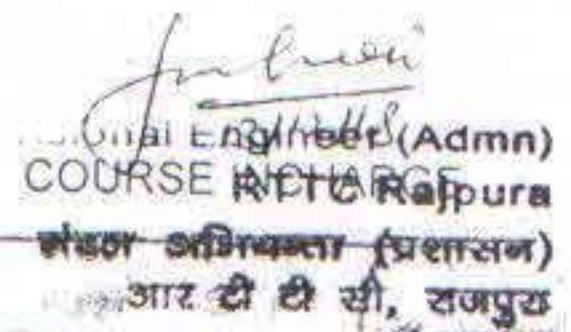 Engineer (Admn)
COURSE INCHARGE
RTTC Rajpura
मंडल अभियन्ता (प्रशासन)
आर टी टी सी, राजपुरा